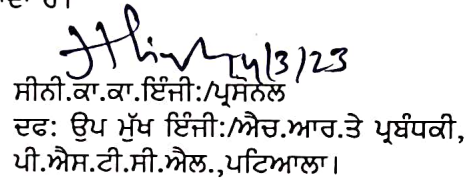 24/3/23
ਸੀਨੀ.ਕਾ.ਕਾ.ਇੰਜੀ:/ਪ੍ਰਸੋਨਲ
ਦਫ: ਉਪ ਮੁੱਖ ਇੰਜੀ:/ਐਚ.ਆਰ.ਤੇ ਪ੍ਰਬੰਧਕੀ,
ਪੀ.ਐਸ.ਟੀ.ਸੀ.ਐਲ.,ਪਟਿਆਲਾ।